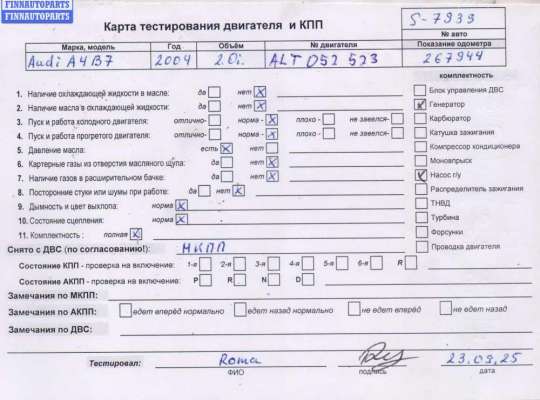 FINNAUTOPARTS
FINNAUTOPARTS
FINNAUTOPARTS
Карта тестирования двигателя и КПП
S-7933
№ авто
Марка, модель Год Объём № двигателя Показание одометра
Audi A4 B7 2004 2.0i. ALT 052 523 267944
комплектность
1. Наличие охлаждающей жидкости в масле: да нет X
2. Наличие масла в охлаждающей жидкости: да нет X
3. Пуск и работа холодного двигателя: отлично- норма - X плохо - не завелся-
4. Пуск и работа прогретого двигателя: отлично- норма - X плохо - не завелся-
5. Давление масла: есть X нет
6. Картерные газы из отверстия масляного щупа: да нет X
7. Наличие газов в расширительном бачке: да нет X
8. Посторонние стуки или шумы при работе: да нет X
9. Дымность и цвет выхлопа: норма X
10. Состояние сцепления: норма X
11. Комплектность : полная X
Блок управления ДВС
Генератор
Карбюратор
Катушка зажигания
Компрессор кондиционера
Моновпрыск
Насос г/у
Распределитель зажигания
ТНВД
Турбина
Форсунки
Проводка двигателя
Снято с ДВС (по согласованию!): МКПП
Состояние КПП - проверка на включение: 1-я 2-я 3-я 4-я 5-я 6-я R
Состояние АКПП - проверка на включение: P R N D
Замечания по МКПП:
Замечания по АКПП: едет вперёд нормально едет назад нормально не едет вперёд не едет назад
Замечания по ДВС:
Тестировал: Roma 23.09.25
ФИО подпись дата